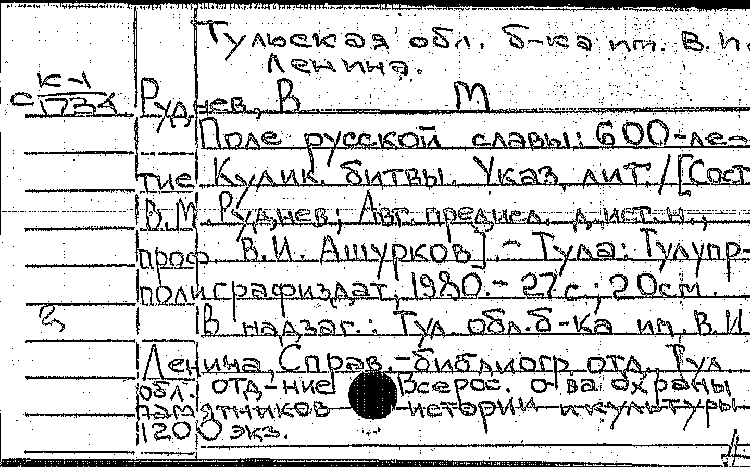 Тульская обл. б-ка им. В.И.
Ленина.
К-1
Руднев, В М
Поле русской славы: 600-ле-
тие Кулик. битвы. Указ. лит. / [Сост.
В.М. Руднев; Авт. предисл. д. ист. н.,
проф. В.И. Ашурков]. - Тула: Тулупр-
полиграфиздат, 1980. - 27 с.; 20 см.
В надзаг.: Тул. обл. б-ка им. В.И.
Ленина, Справ.-библиогр. отд., Тул.
обл. отд-ние Всерос. о-ва охраны
памятников истории и культуры
1200 экз.